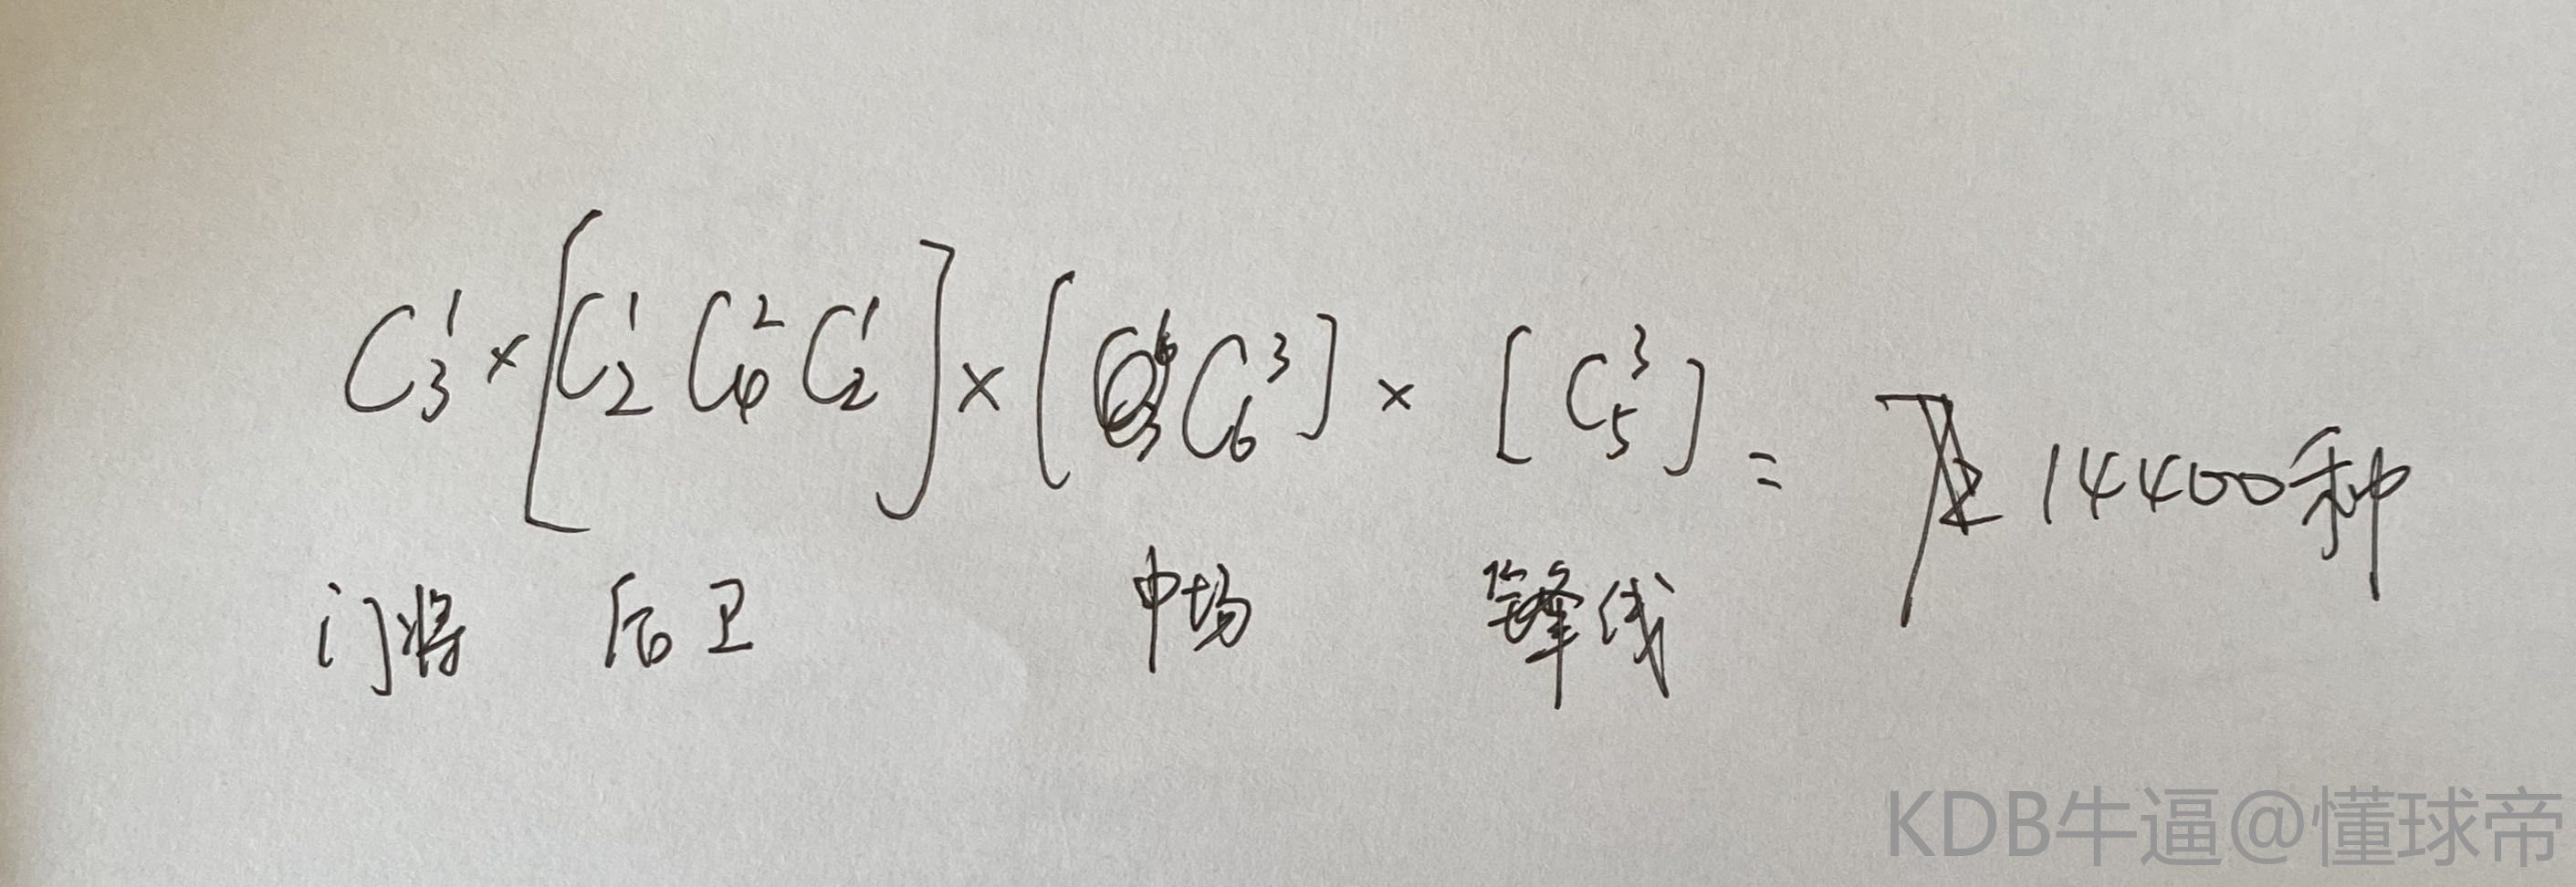 C₃¹ × [C₂¹ C₄² C₂¹] × [C₆³] × [C₅³] = 14400种
门将 后卫 中场 锋线
KDB牛逼@懂球帝